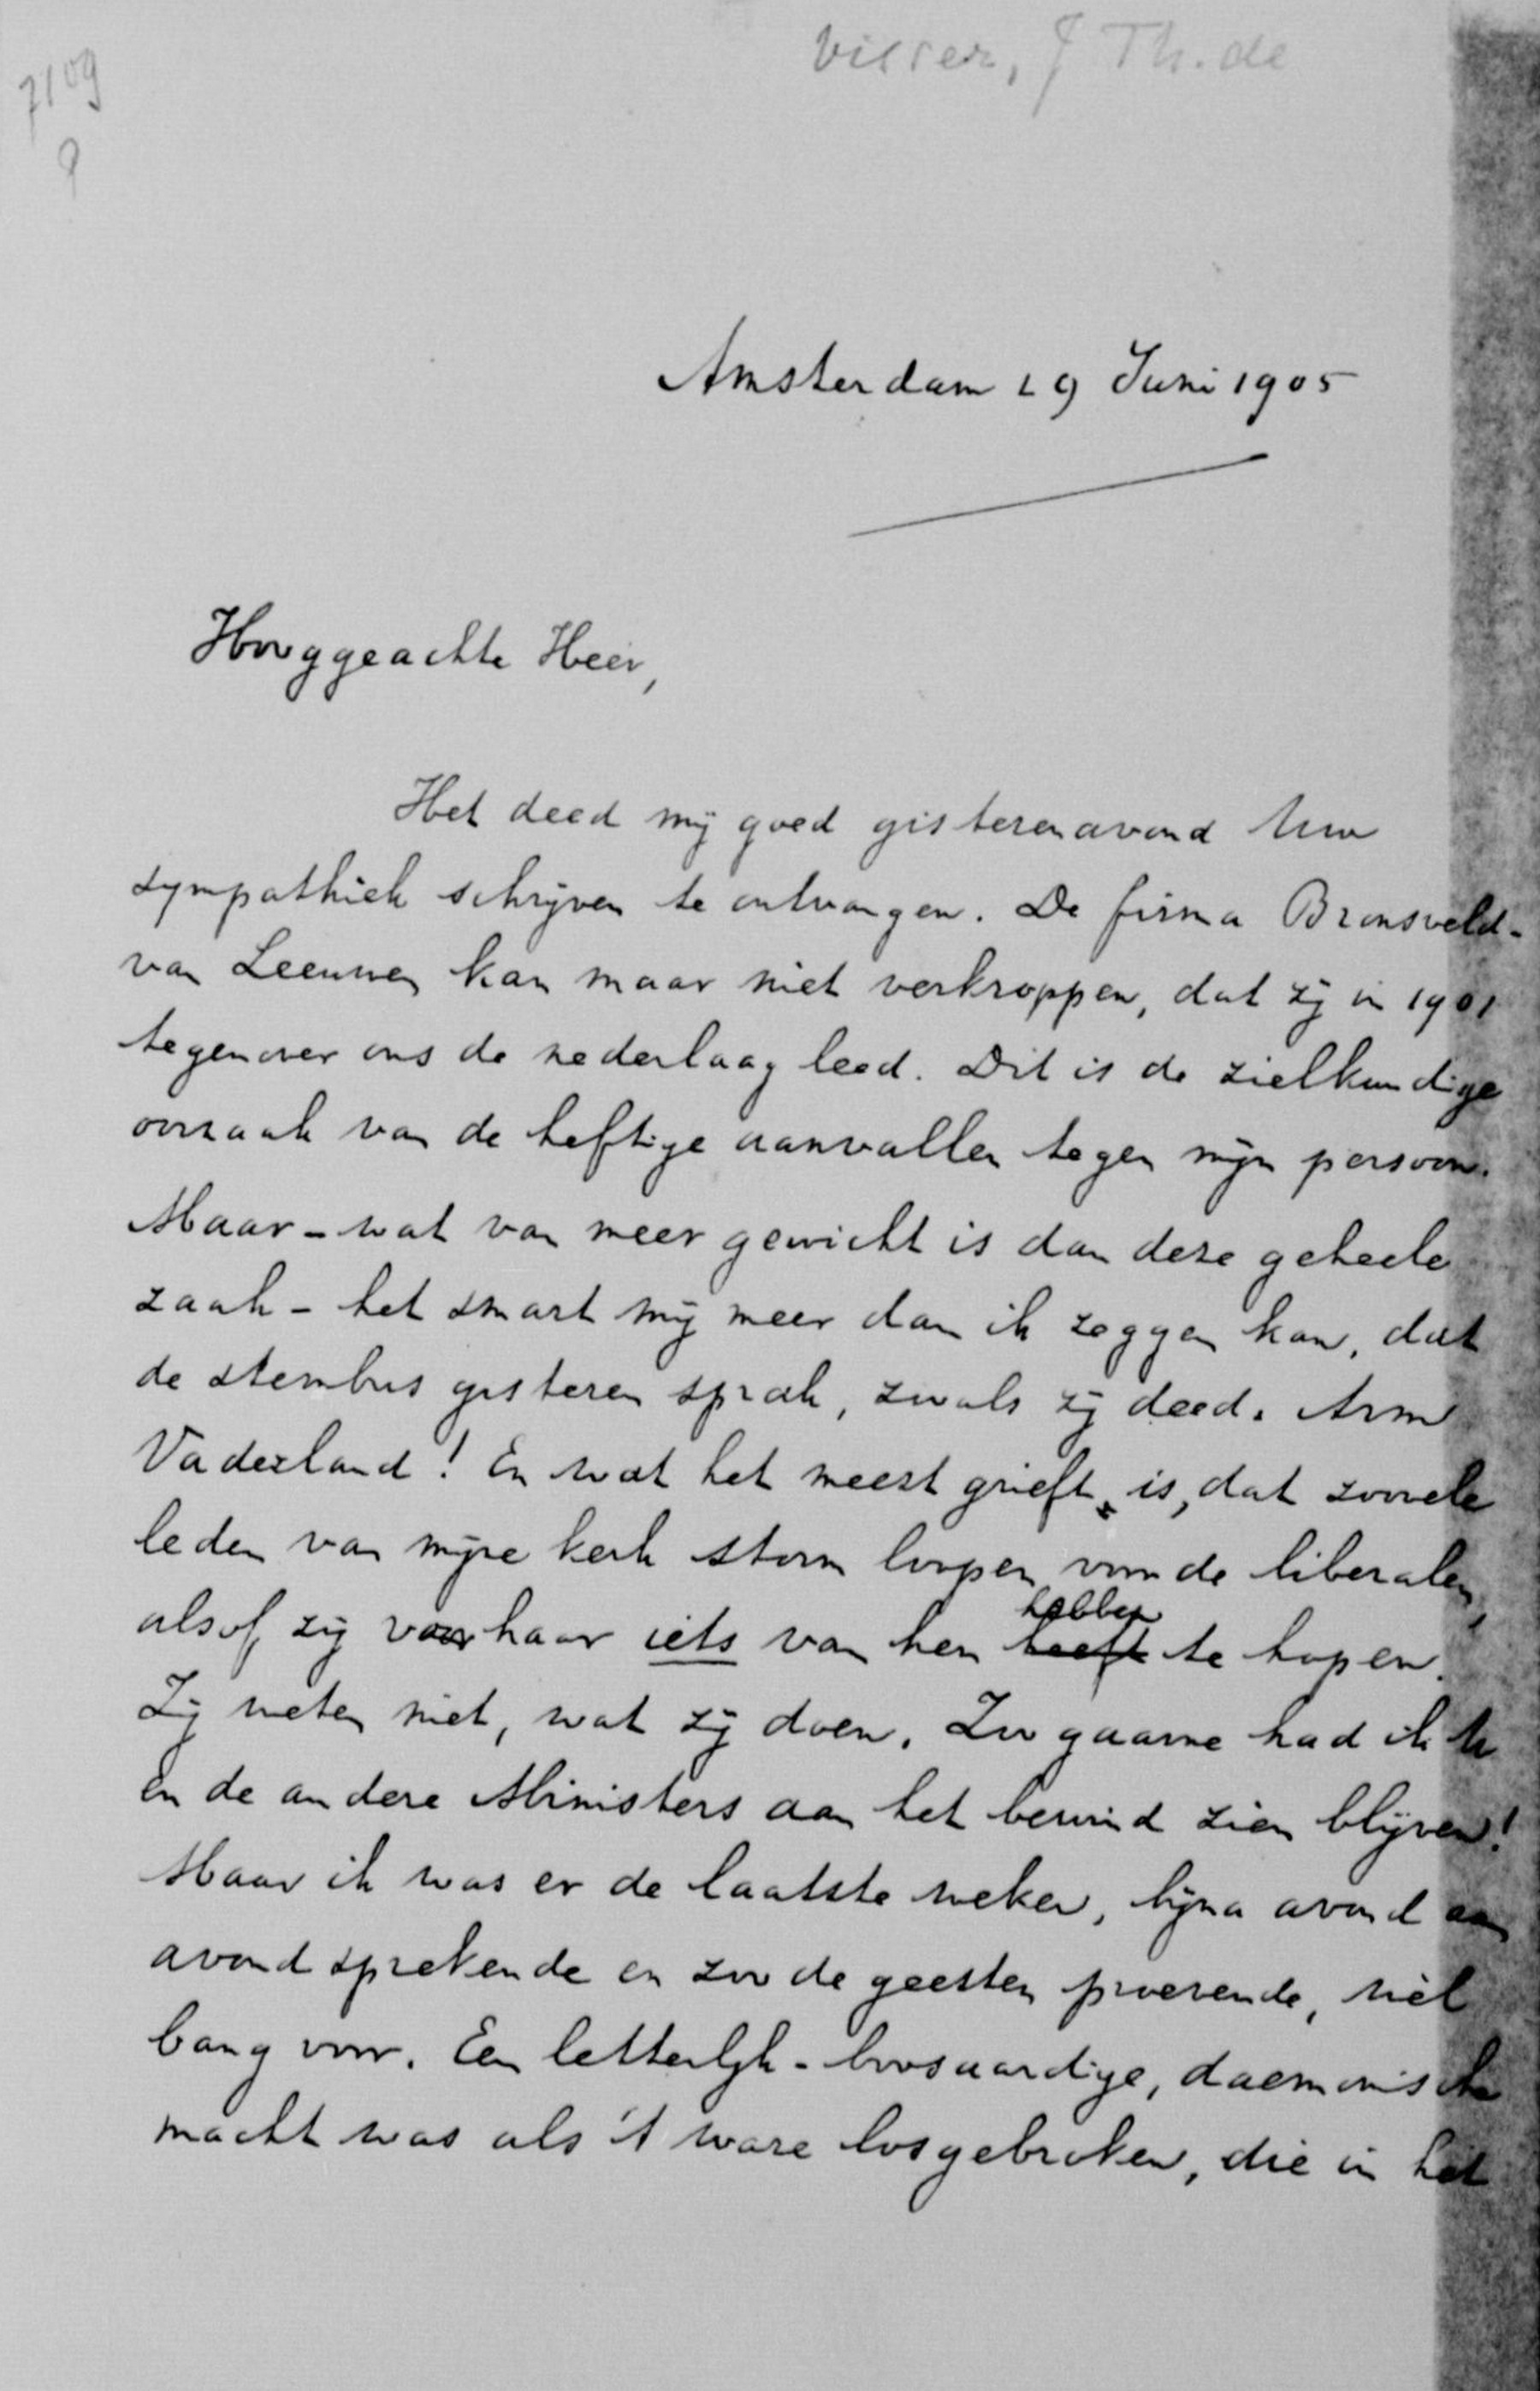 Visser, J Th. de
7109
9
Amsterdam 29 Juni 1905
Hooggeachte Heer,
Het deed mij goed gisterenavond Uw
sympathiek schrijven te ontvangen. De firma Bronsveld-
van Leeuwen kan maar niet verkroppen, dat zij in 1901
tegenover ons de nederlaag leed. Dit is de zielkundige
oorzaak van de heftige aanvallen tegen mijn persoon.
Maar - wat van meer gewicht is dan deze geheele
zaak - het smart mij meer dan ik zeggen kan, dat
de stembus gisteren sprak, zooals zij deed. Arm
Vaderland! En wat het meest grieft, is, dat zoovele
leden van mijne kerk storm loopen voor de liberalen,
alsof zij voor haar iets van hen heeft hebben te hopen.
Zij weten niet, wat zij doen. Zoo gaarne had ik U
en de andere Ministers aan het bewind zien blijven!
Maar ik was er de laatste weken, bijna avond aan
avond sprekende en zoo de geesten proevende, wèl
bang voor. Een letterlijk-boosaardige, daemonische
macht was als 't ware losgebroken, die in het